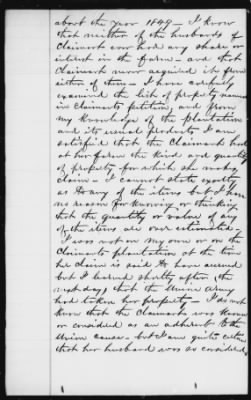 about the year 1849 — I know
that neither of the husbands of
Claimant ever had any share or
interest in the farm — and that
Claimant never acquired it from
either of them — I have carefully
examined the list of property named
in Claimants petition, and from
my knowledge of the plantation
and its usual products I am
satisfied that the Claimant had
at her farm the kind and quantity
of property for which she makes
claim — I cannot state exactly
as to any of the items but I have
no reason for knowing or thinking
that the quantity or value of any
of the items are over estimated.
I was not on my own or on the
Claimants plantation at the time
her claim is said to have accrued
but I learned shortly after, the
next day, that the Union Army
had taken her property — I do not
know that the Claimant was known
or considered as an adherent to the
Union cause but I am quite certain
that her husband was so considered,